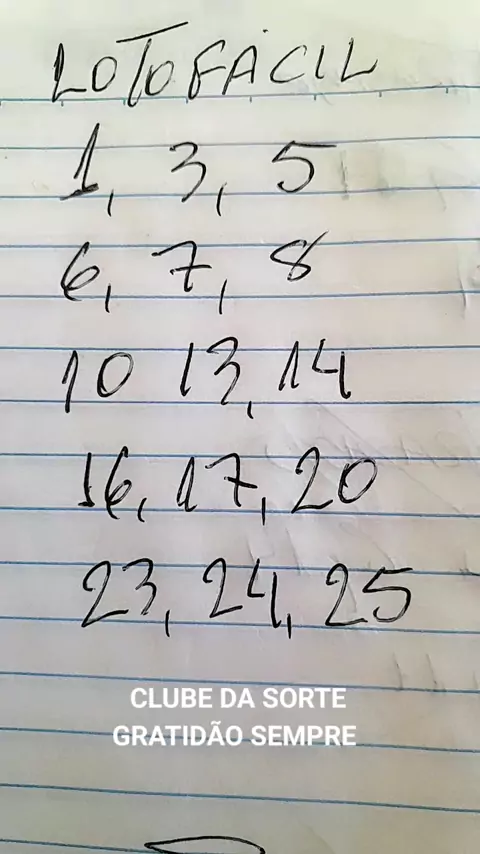 LOTOFÁCIL
1, 3, 5
6, 7, 8
10 13, 14
16, 17, 20
23, 24, 25
CLUBE DA SORTE
GRATIDÃO SEMPRE